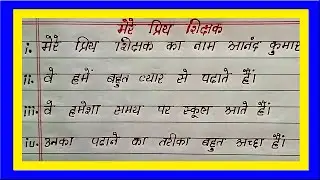 मेरे प्रिय शिक्षक
i. मेरे प्रिय शिक्षक का नाम आनंद कुमार
ii. वे हमें बहुत प्यार से पढाते हैं।
iii. वे हमेशा समय पर स्कूल आते हैं।
iv. उनका पढाने का तरीका बहुत अच्छा हैं।